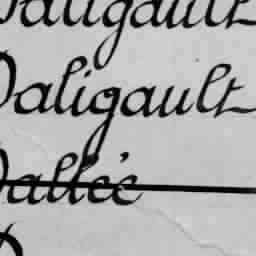 Daligault
Daligault
Dallée